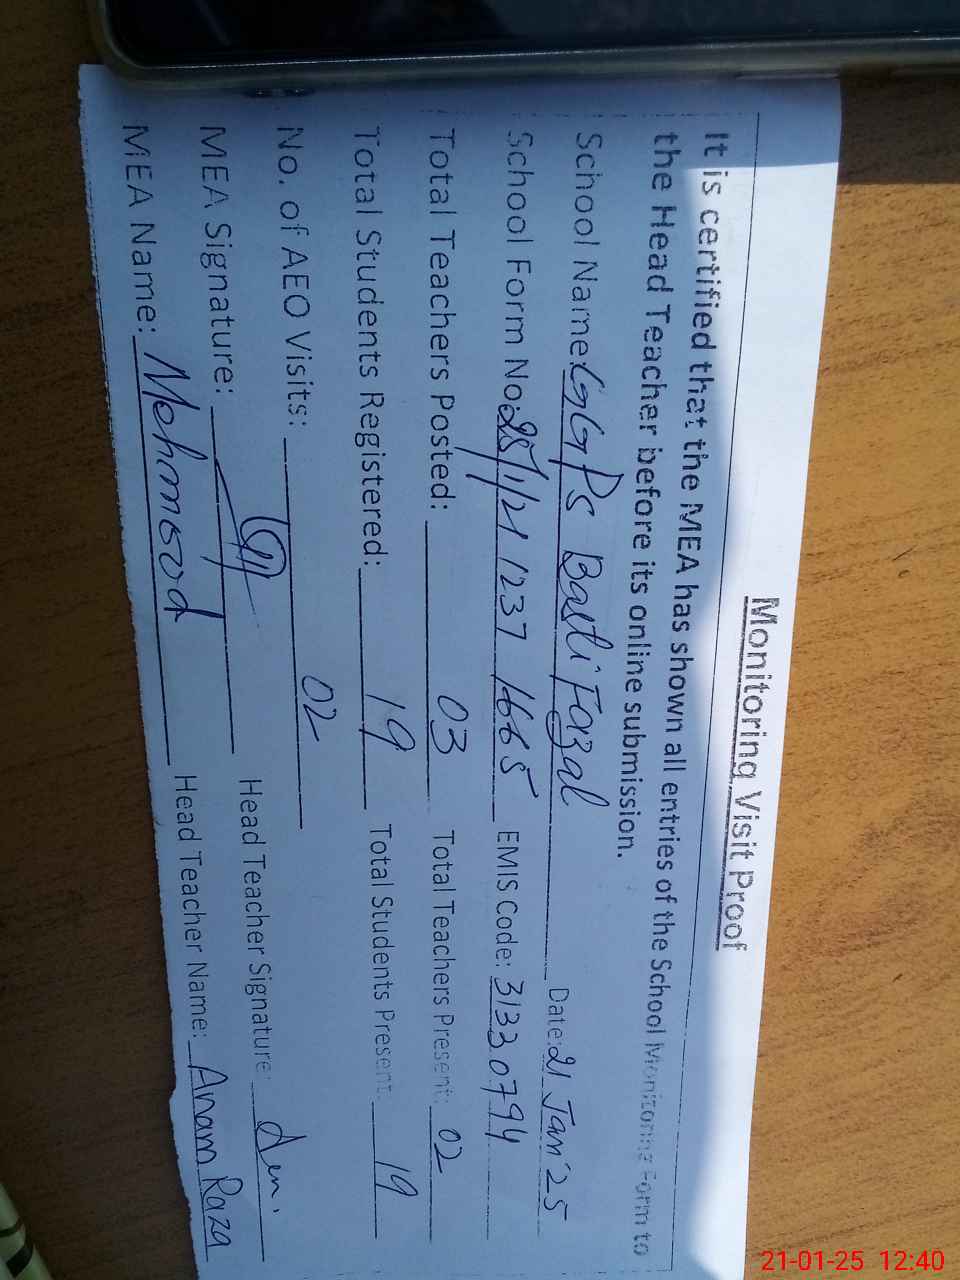 Monitoring Visit Proof
It is certified that the MEA has shown all entries of the School Monitoring Form to
the Head Teacher before its online submission.
School Name: GGPS Basti Fazal Date: 21 Jan'25
School Form No: 25/1/21 1237 1665 EMIS Code: 31330794
Total Teachers Posted: 03 Total Teachers Present: 02
Total Students Registered: 19 Total Students Present: 19
No. of AEO Visits: 02
MEA Signature: Head Teacher Signature:
MEA Name: Mehmood Head Teacher Name: Anam Raza
21-01-25 12:40